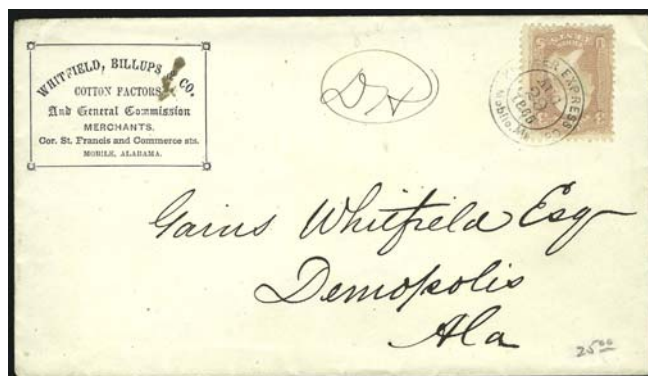 WHITFIELD, BILLUPS & CO.
COTTON FACTORS
And General Commission
MERCHANTS.
Cor. St. Francis and Commerce sts.
MOBILE, ALABAMA.
D H
EXPRESS CO.
Mobile, Ala.
Gains Whitfield Esq
Demopolis
Ala
25.00